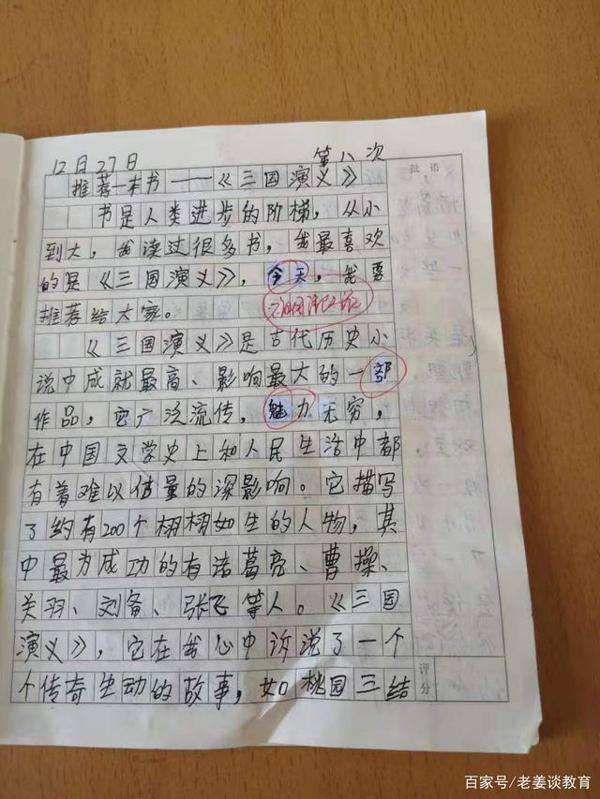 12月27日 第八次
批语
推荐一本书——《三国演义》
书是人类进步的阶梯，从小
到大，我读过很多书，我最喜欢
的是《三国演义》，今天，我要
推荐给大家。
《三国演义》是古代历史小
说中成就最高、影响最大的一部
作品，它广泛流传，魅力无穷，
在中国文学史上和人民生活中都
有着难以估量的深影响。它描写
了约有200个栩栩如生的人物，其
中最为成功的有诸葛亮、曹操、
关羽、刘备、张飞等人。《三国
演义》，它在我心中诉说了一个
个传奇生动的故事，如桃园三结
评分
百家号/老姜谈教育